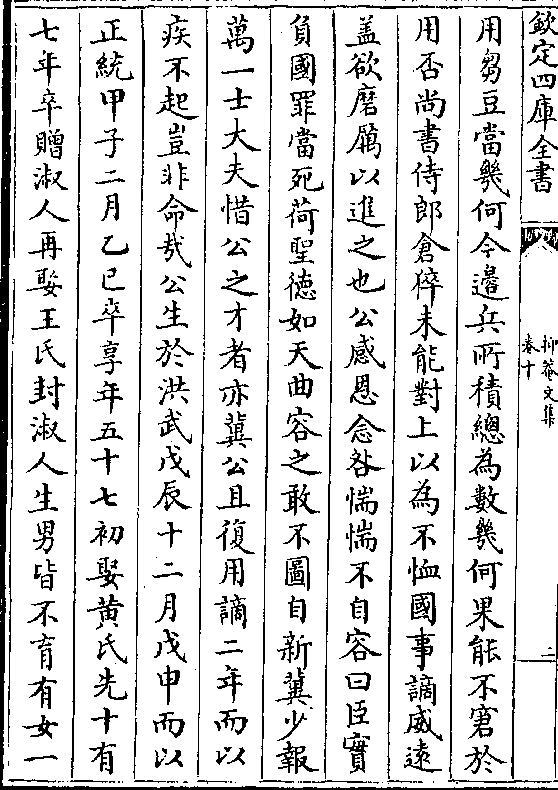 欽定四庫全書
抑菴文集
卷十
二
用芻豆當幾何今邉兵所積總為數幾何果能不窘於
用否尚書侍郎倉猝未能對上以為不恤國事謫威遠
盖欲磨厲以進之也公感恩念咎惴惴不自容曰臣實
負國罪當死荷聖徳如天曲容之敢不圖自新冀少報
萬一士大夫惜公之才者亦冀公且復用謫二年而以
疾不起豈非命哉公生於洪武戊辰十二月戊申而以
正統甲子二月乙巳卒享年五十七初娶黄氏先十有
七年卒贈淑人再娶王氏封淑人生男皆不育有女一